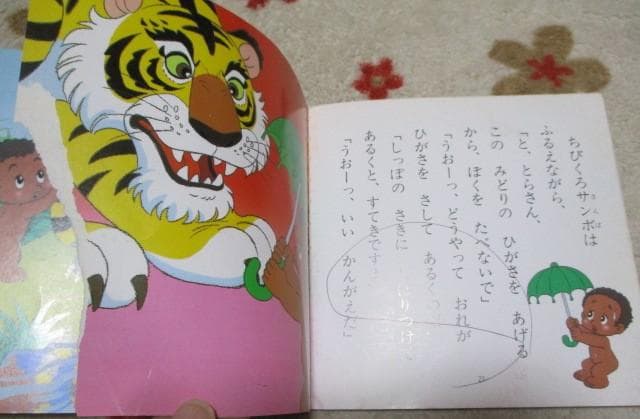 ちびくろサンボは
ふるえながら、
「と、とらさん、
この みどりの ひがさを あげる
から、ぼくを たべないで」
「うおーっ、どうやって おれが
ひがさを さして あるく
「しっぽの さきに
あるくと、すてきです
「うおーっ、いい かんがえだ」